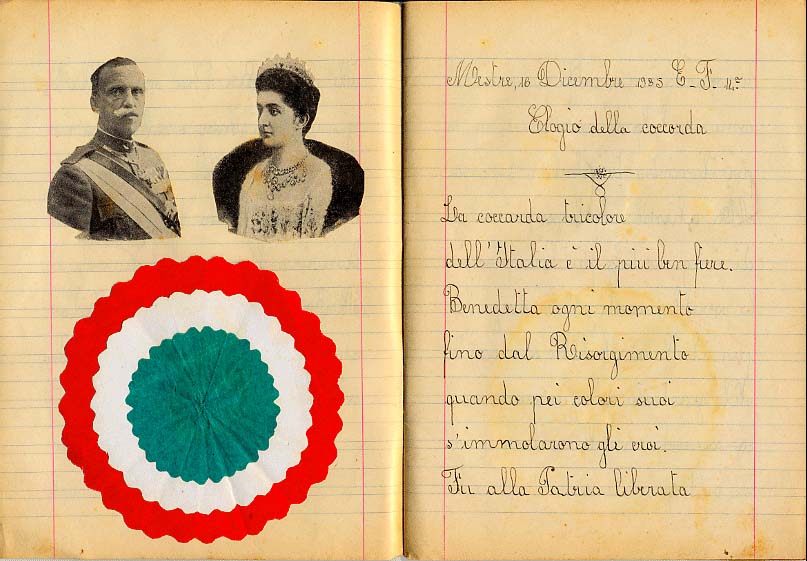 Mestre, 16 Dicembre 1935 E. F. 14°
Elogio della coccorda
La coccarda tricolore
dell'Italia è il più ben fiore.
Benedetta ogni momento
fino dal Risorgimento
quando pei colori suoi
s'immolarono gli eroi.
Fu alla Patria liberata